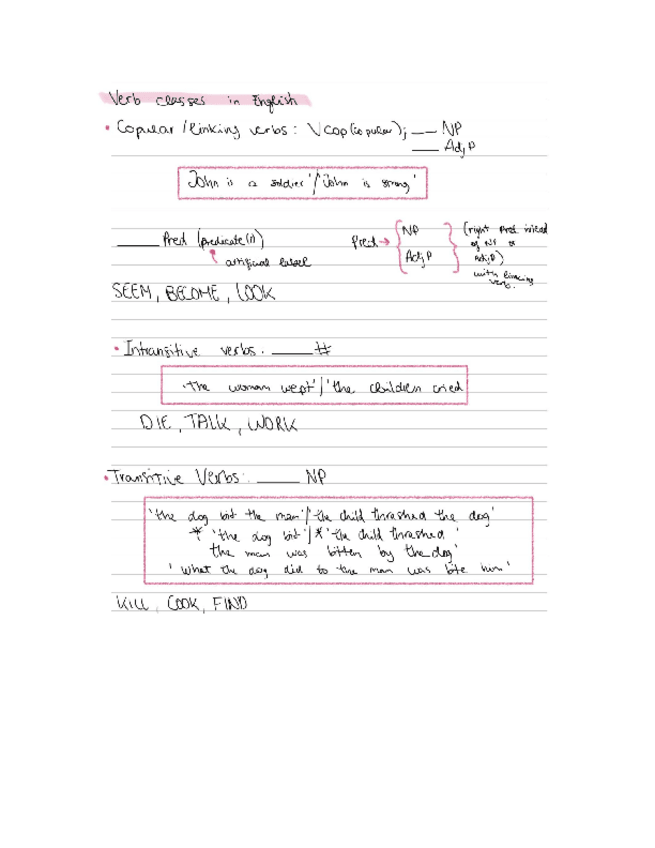 Verb classes in English
• Copular / linking verbs: Vcop (copular); ___ NP
___ AdjP
'John is a soldier' / 'John is strong'
___ Pred (predicate(n)) Pred → { NP AdjP } (right Pred instead of NP or AdjP) with linking verb.
artificial label
SEEM, BECOME, LOOK
• Intransitive verbs. ___ #
'the woman wept' / 'the children cried
DIE, TALK, WORK
• Transitive Verbs: ___ NP
'the dog bit the man' / 'the child thrashed the dog'
* 'the dog bit' / * 'the child thrashed'
the man was bitten by the dog'
'what the dog did to the man was bite him'
KILL, COOK, FIND